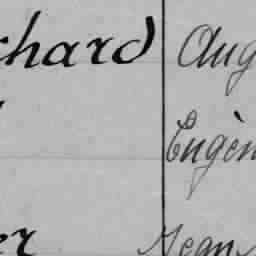 chard Aug
Eugèn
er Jean